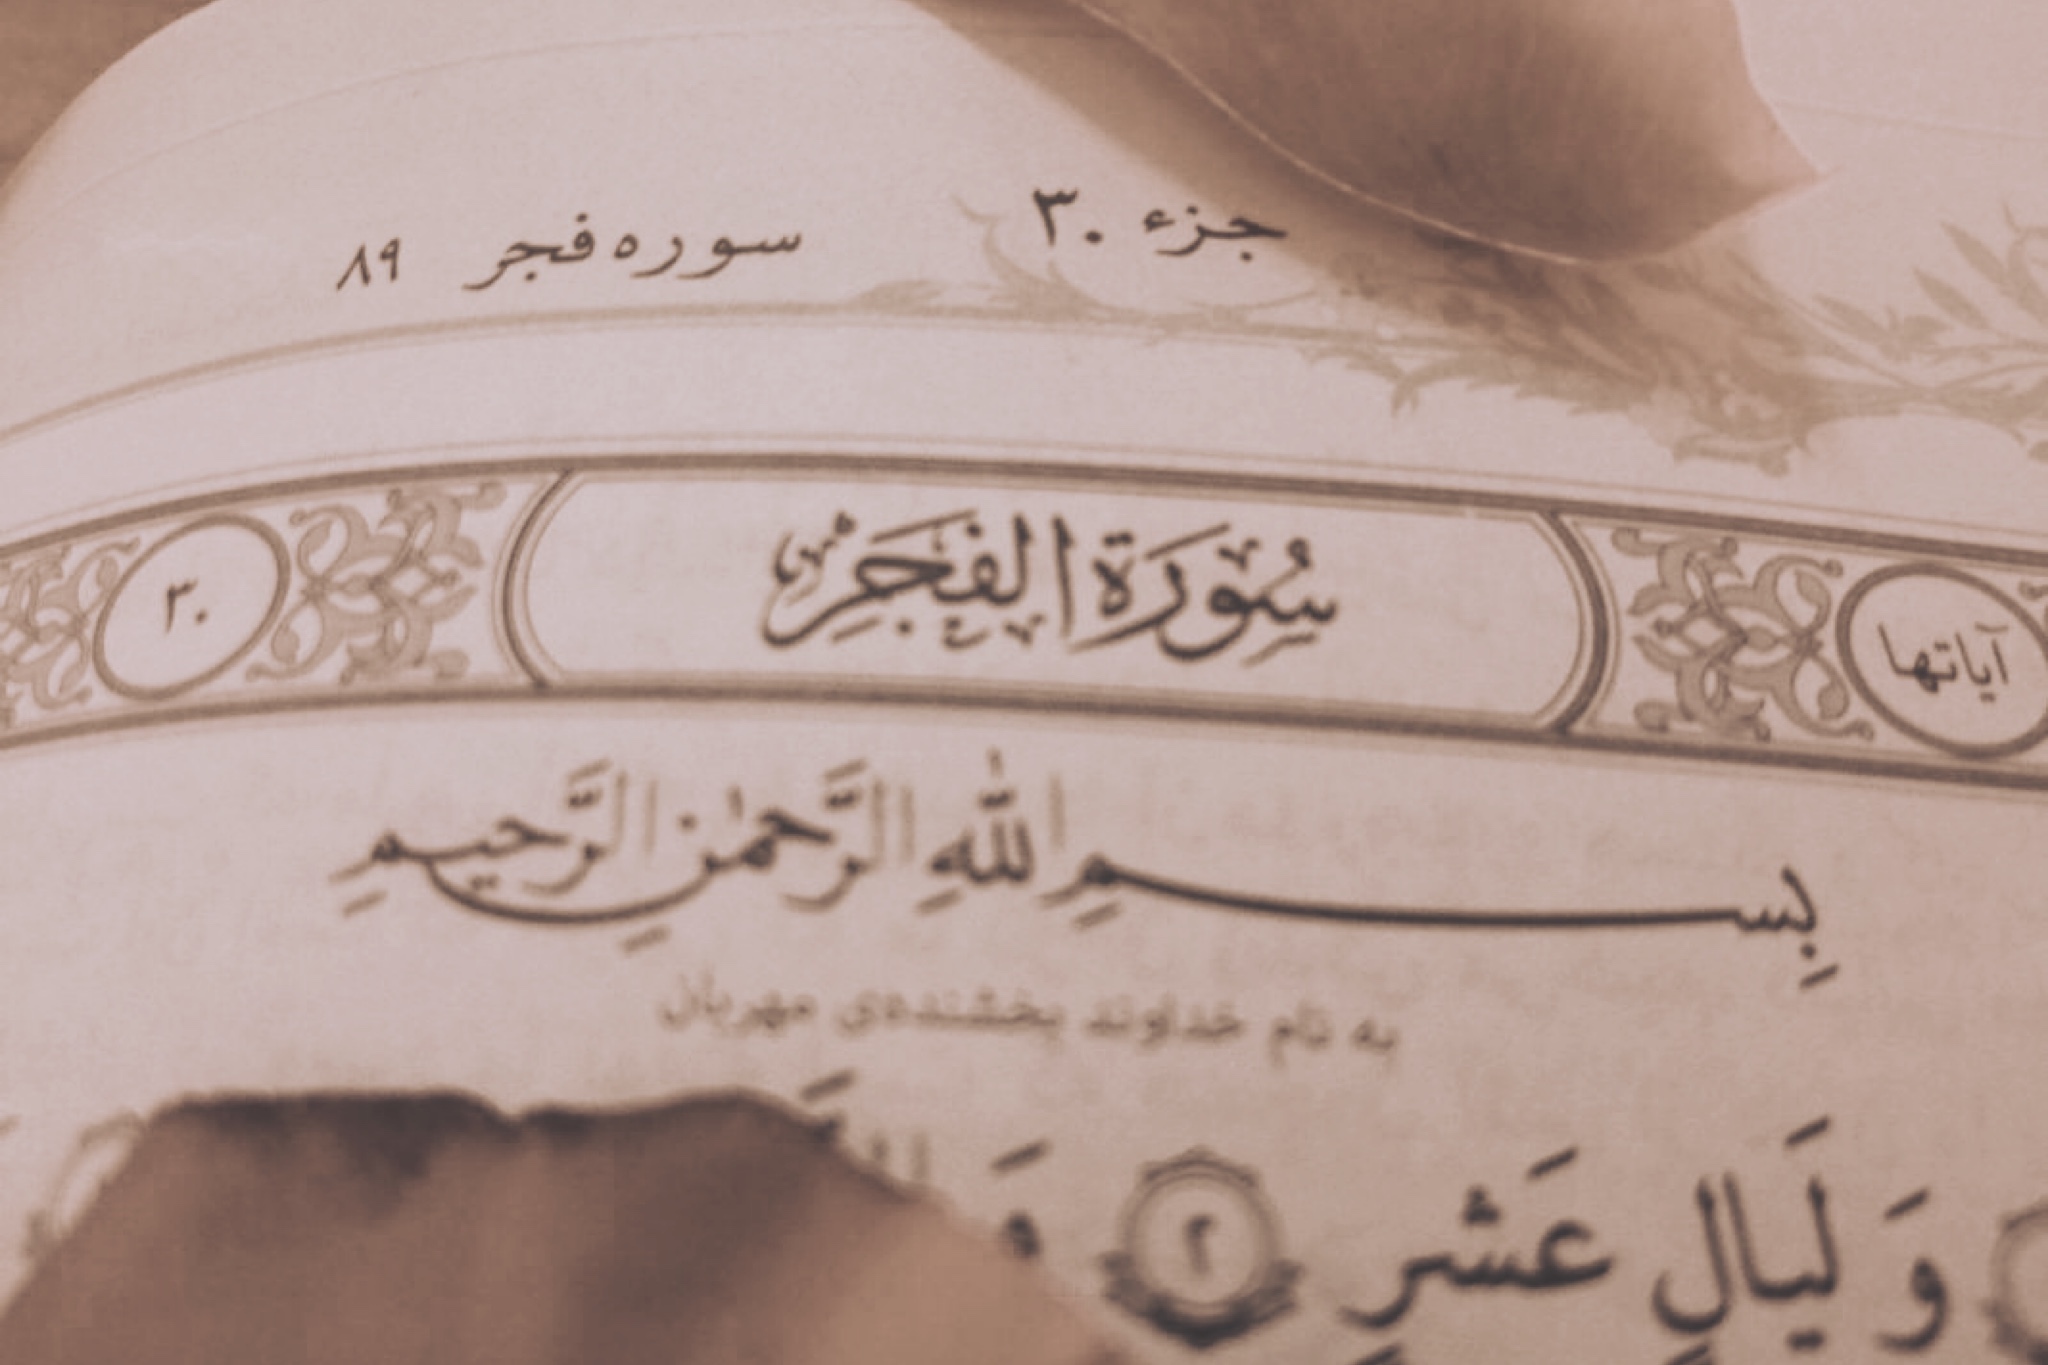 جزء ۳۰ سوره فجر ۸۹
آیاتها سُورَةُ الفَجَرْ ۳۰
بِسمِ اللّٰهِ الرَّحمٰنِ الرَّحیمِ
به نام خداوند بخشنده‌ی مهربان
وَ لَیالٍ عَشرٍ ۲ وَ